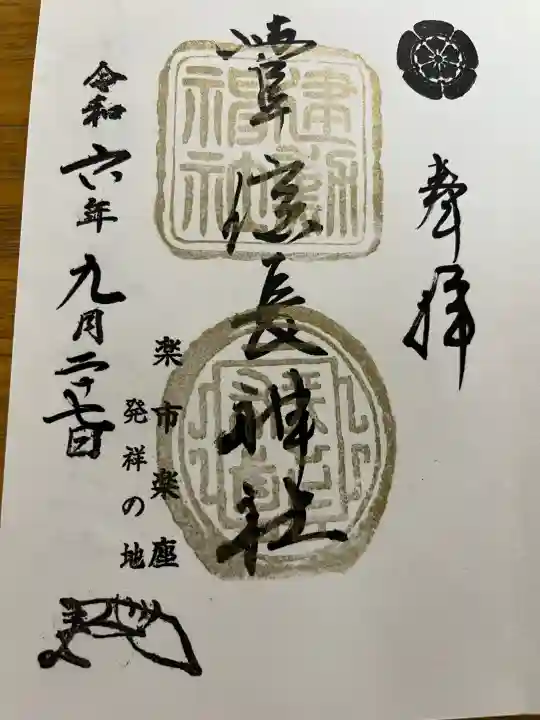 奉拝
岐阜信長神社
建勲
神社
楽市楽座
発祥の地
令和六年九月二十七日